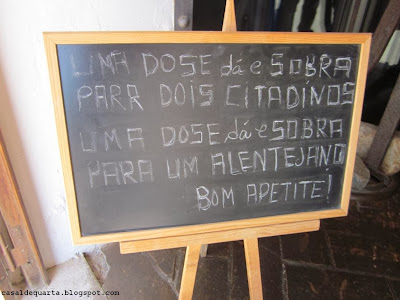 UMA DOSE dá e SOBRA
PARA DOIS CITADINOS
UMA DOSE dá e SOBRA
PARA UM ALENTEJANO
BOM APETITE!
casaldequarta.blogspot.com